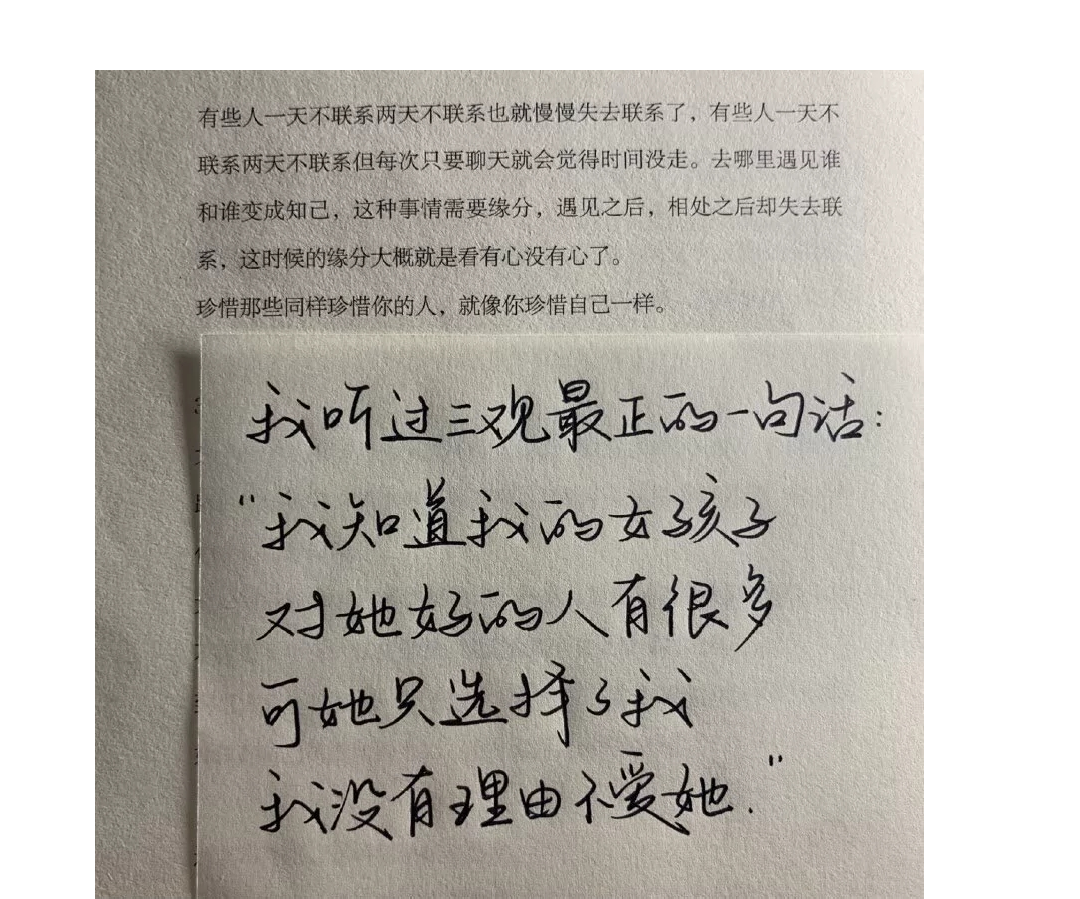 有些人一天不联系两天不联系也就慢慢失去联系了，有些人一天不
联系两天不联系但每次只要聊天就会觉得时间没走。去哪里遇见谁
和谁变成知己，这种事情需要缘分，遇见之后，相处之后却失去联
系，这时候的缘分大概就是看有心没有心了。
珍惜那些同样珍惜你的人，就像你珍惜自己一样。
我听过三观最正的一句话：
“我知道我的女孩子
对她好的人有很多
可她只选择了我
我没有理由不爱她.”